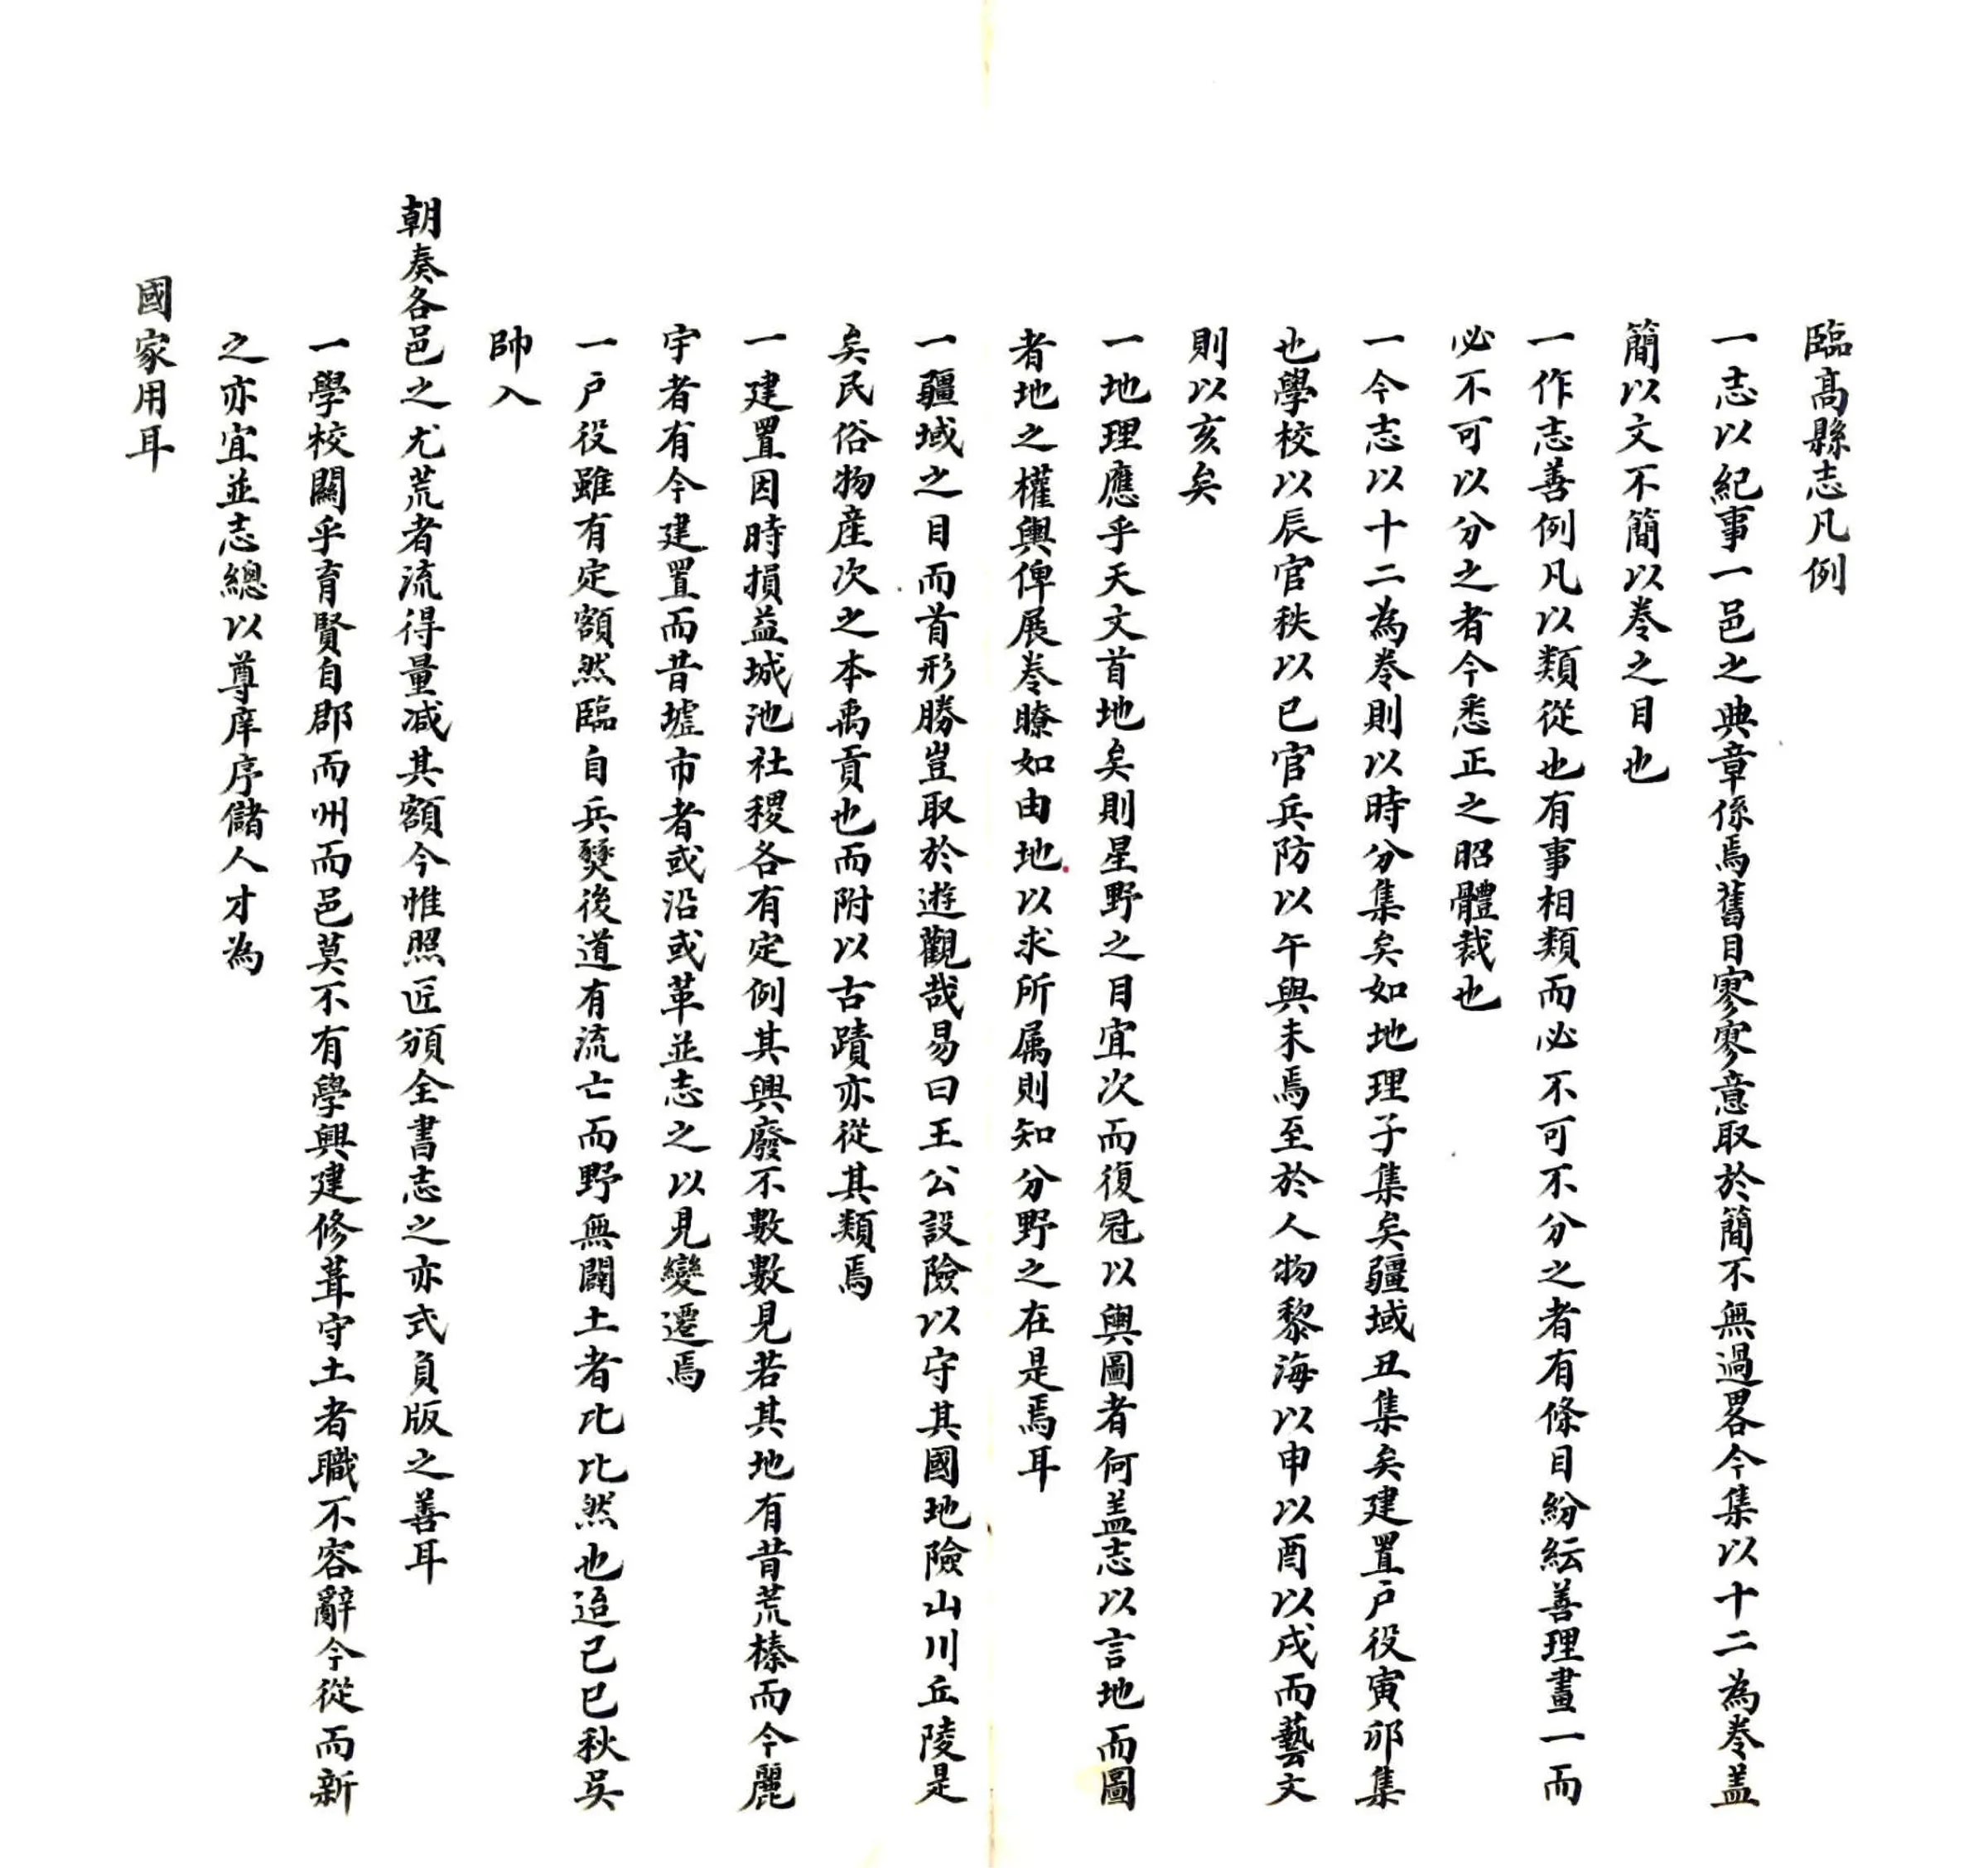 臨高縣志凡例
一志以紀事一邑之典章係焉舊目寥寥意取於簡不無過畧今集以十二為卷盖
簡以文不簡以卷之目也
一作志善例凡以類從也有事相類而必不可不分之者有條目紛紜善理畫一而
必不可以分之者今悉正之昭體裁也
一今志以十二為卷則以時分集矣如地理子集矣疆域丑集矣建置户役寅卯集
也學校以辰官秩以巳官兵防以午與未焉至於人物黎海以申以酉以戌而藝文
則以亥矣
一地理應乎天文首地矣則星野之目宜次而復冠以輿圖者何盖志以言地而圖
者地之權輿俾展卷瞭如由地以求所属則知分野之在是焉耳
一疆域之目而首形勝豈取於遊觀哉易曰王公設險以守其國地險山川丘陵是
矣民俗物產次之本禹貢也而附以古蹟亦從其類焉
一建置因時損益城池社稷各有定例其興廢不數數見若其地有昔荒榛而今麗
宇者有今建置而昔墟市者或沿或革並志之以見變遷焉
一户役雖有定額然臨自兵燹後道有流亡而野無闢土者比比然也迨己巳秋吳
帥入
朝奏各邑之尤荒者流得量减其額今惟照匠頒全書志之亦式負版之善耳
一學校關乎育賢自郡而州而邑莫不有學興建修葺守土者職不容辭今從而新
之亦宜並志總以尊庠序儲人才為
國家用耳